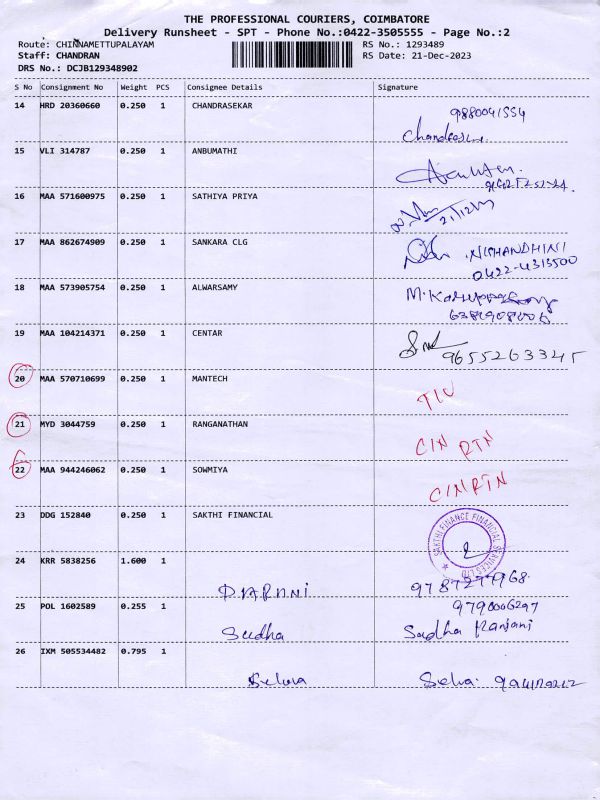 THE PROFESSIONAL COURIERS, COIMBATORE
Delivery Runsheet - SPT - Phone No.:0422-3505555 - Page No.:2
Route: CHINNAMETTUPALAYAM RS No.: 1293489
Staff: CHANDRAN RS Date: 21-Dec-2023
DRS No.: DCJB129348902
S No Consignment No Weight PCS Consignee Details Signature
14 HRD 20360660 0.250 1 CHANDRASEKAR
9880041554
15 VLI 314787 0.250 1 ANBUMATHI
16 MAA 571600975 0.250 1 SATHIYA PRIYA
21/12/23
17 MAA 862674909 0.250 1 SANKARA CLG
NISHANDHINI
0422-4313500
18 MAA 573905754 0.250 1 ALWARSAMY
19 MAA 104214371 0.250 1 CENTAR
9655263345
20 MAA 570710699 0.250 1 MANTECH
21 MYD 3044759 0.250 1 RANGANATHAN
CIN RTN
22 MAA 944246062 0.250 1 SOWMIYA
CIN RTN
23 DDG 152840 0.250 1 SAKTHI FINANCIAL
SAKTHI FINANCE FINANCIAL SERVICES LTD
24 KRR 5838256 1.600 1
25 POL 1602589 0.255 1
9790006297
Sudha Sudha Ranjani
26 IXM 505534482 0.795 1
Selva Selva.